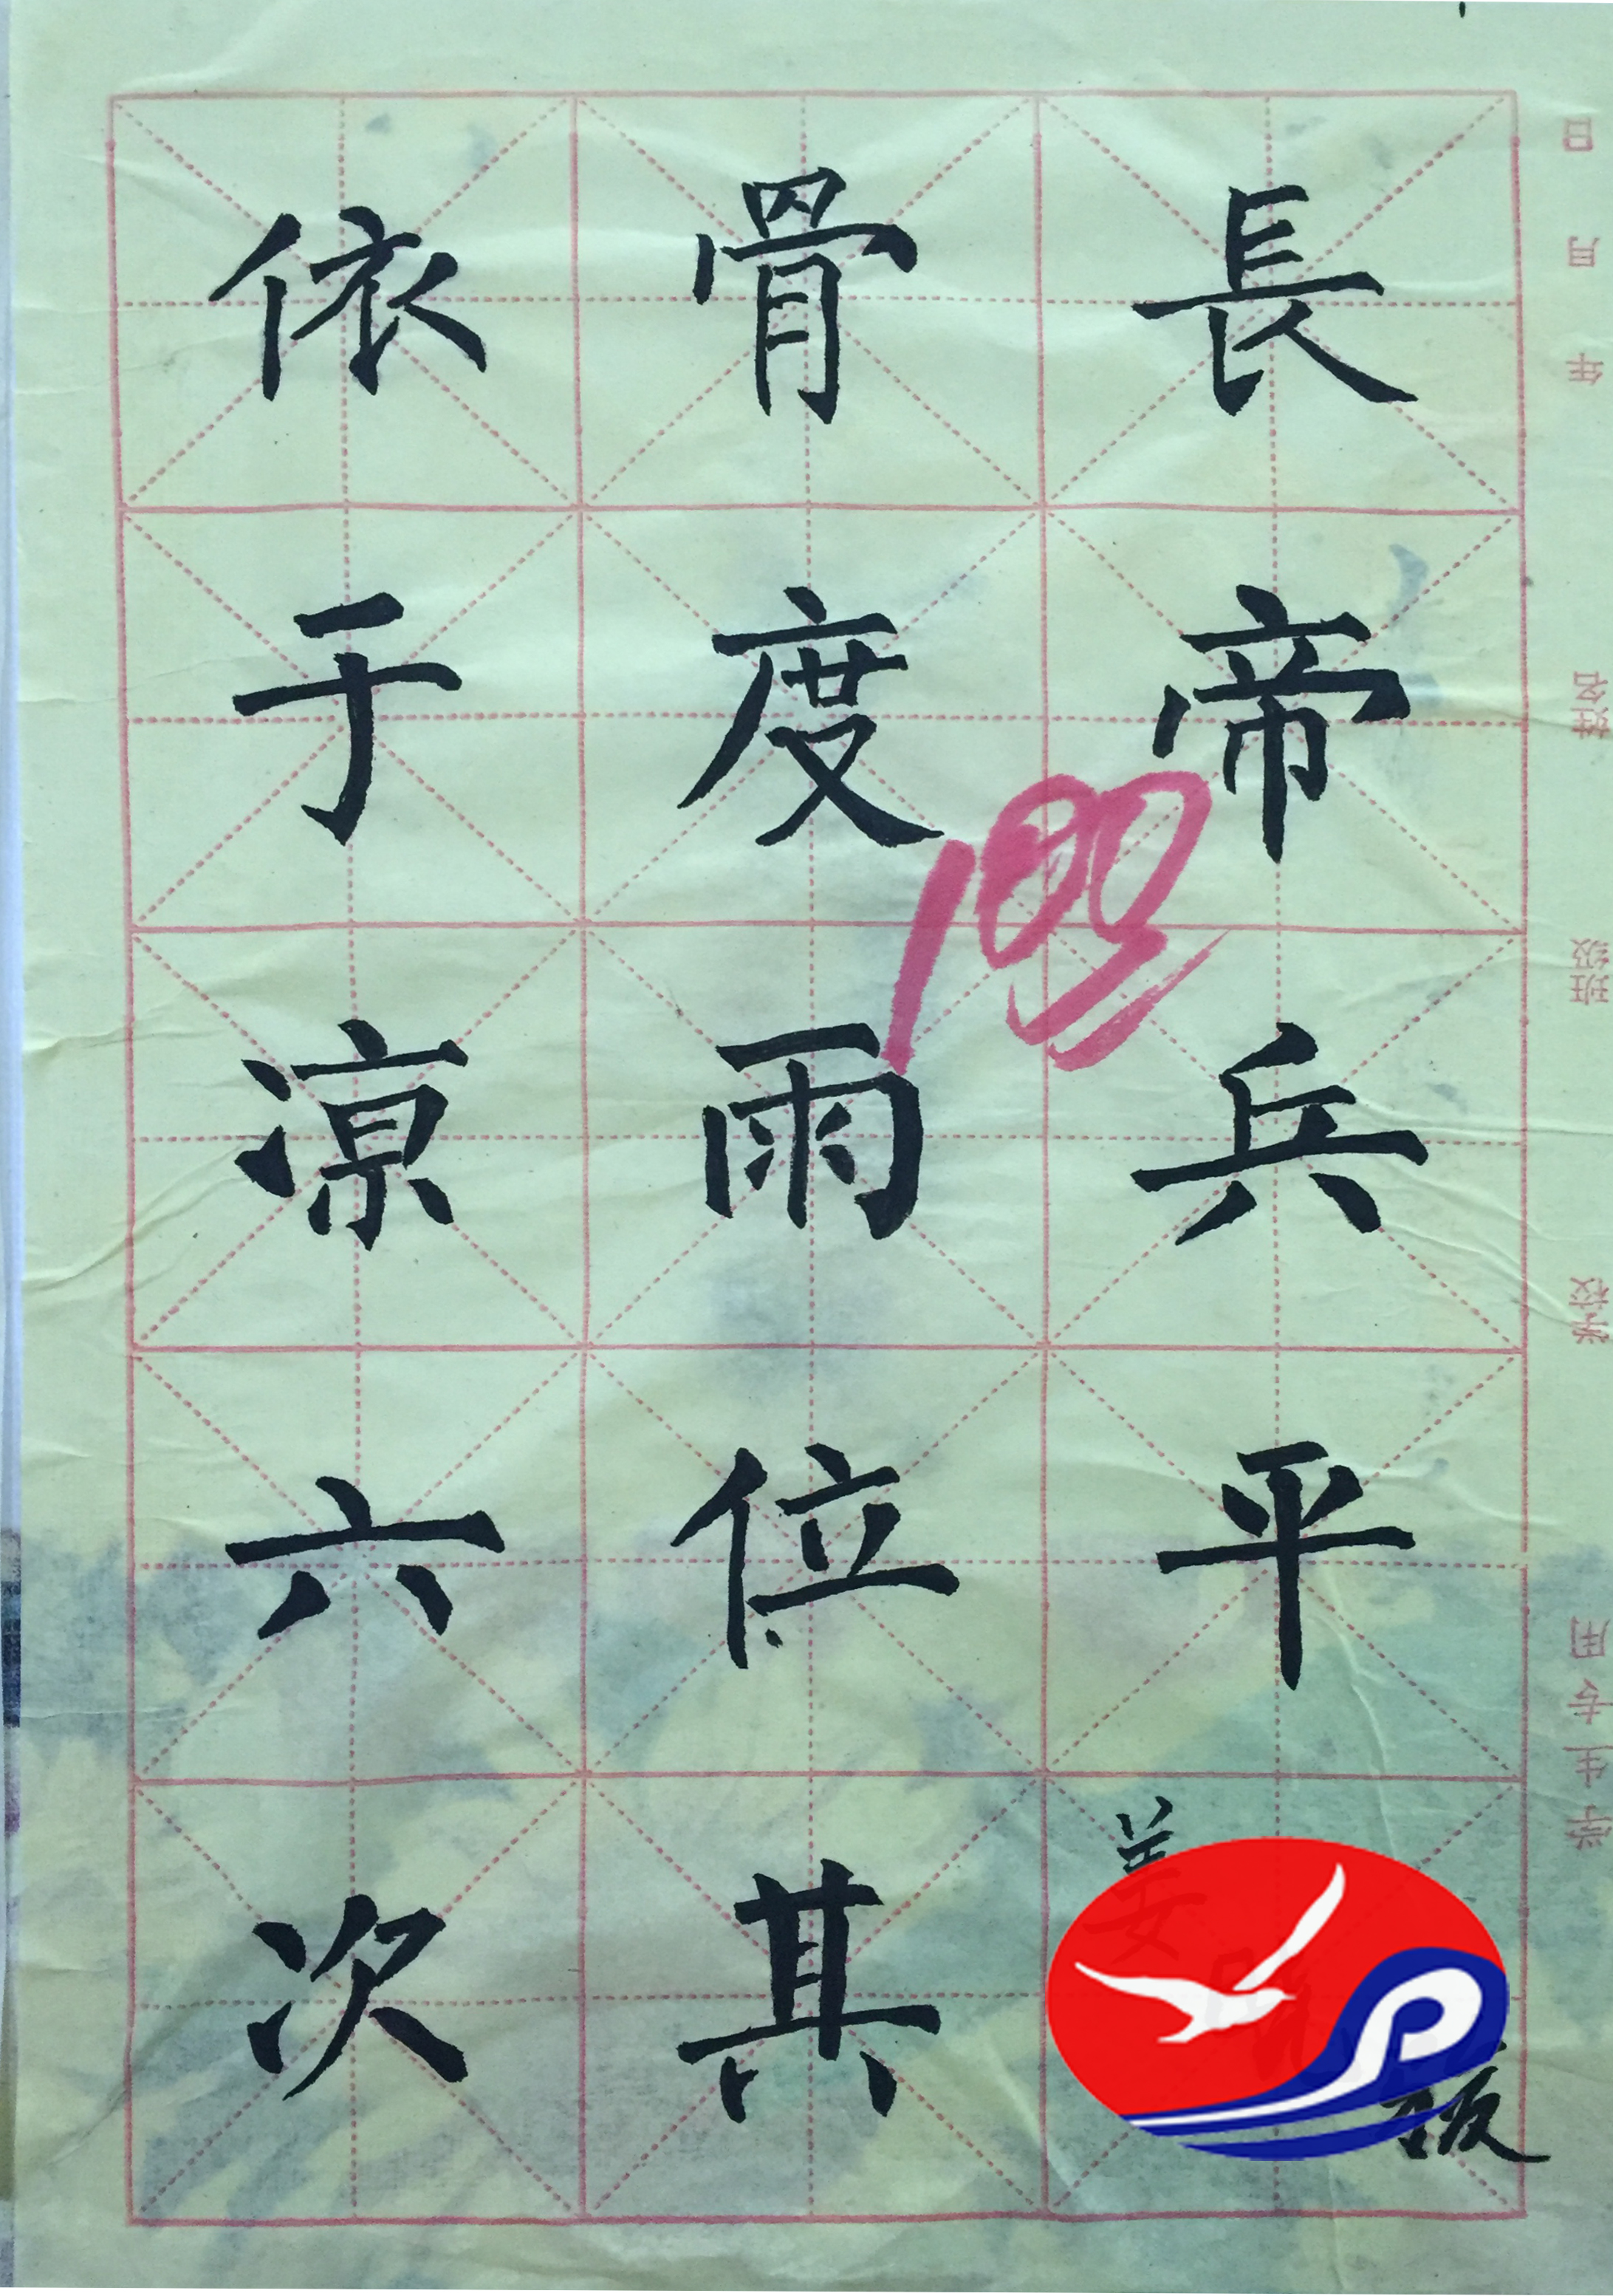 学生专用 学校 班级 姓名 年 月 日
長帝兵平
骨度雨位其
依于凉六次
100
姜